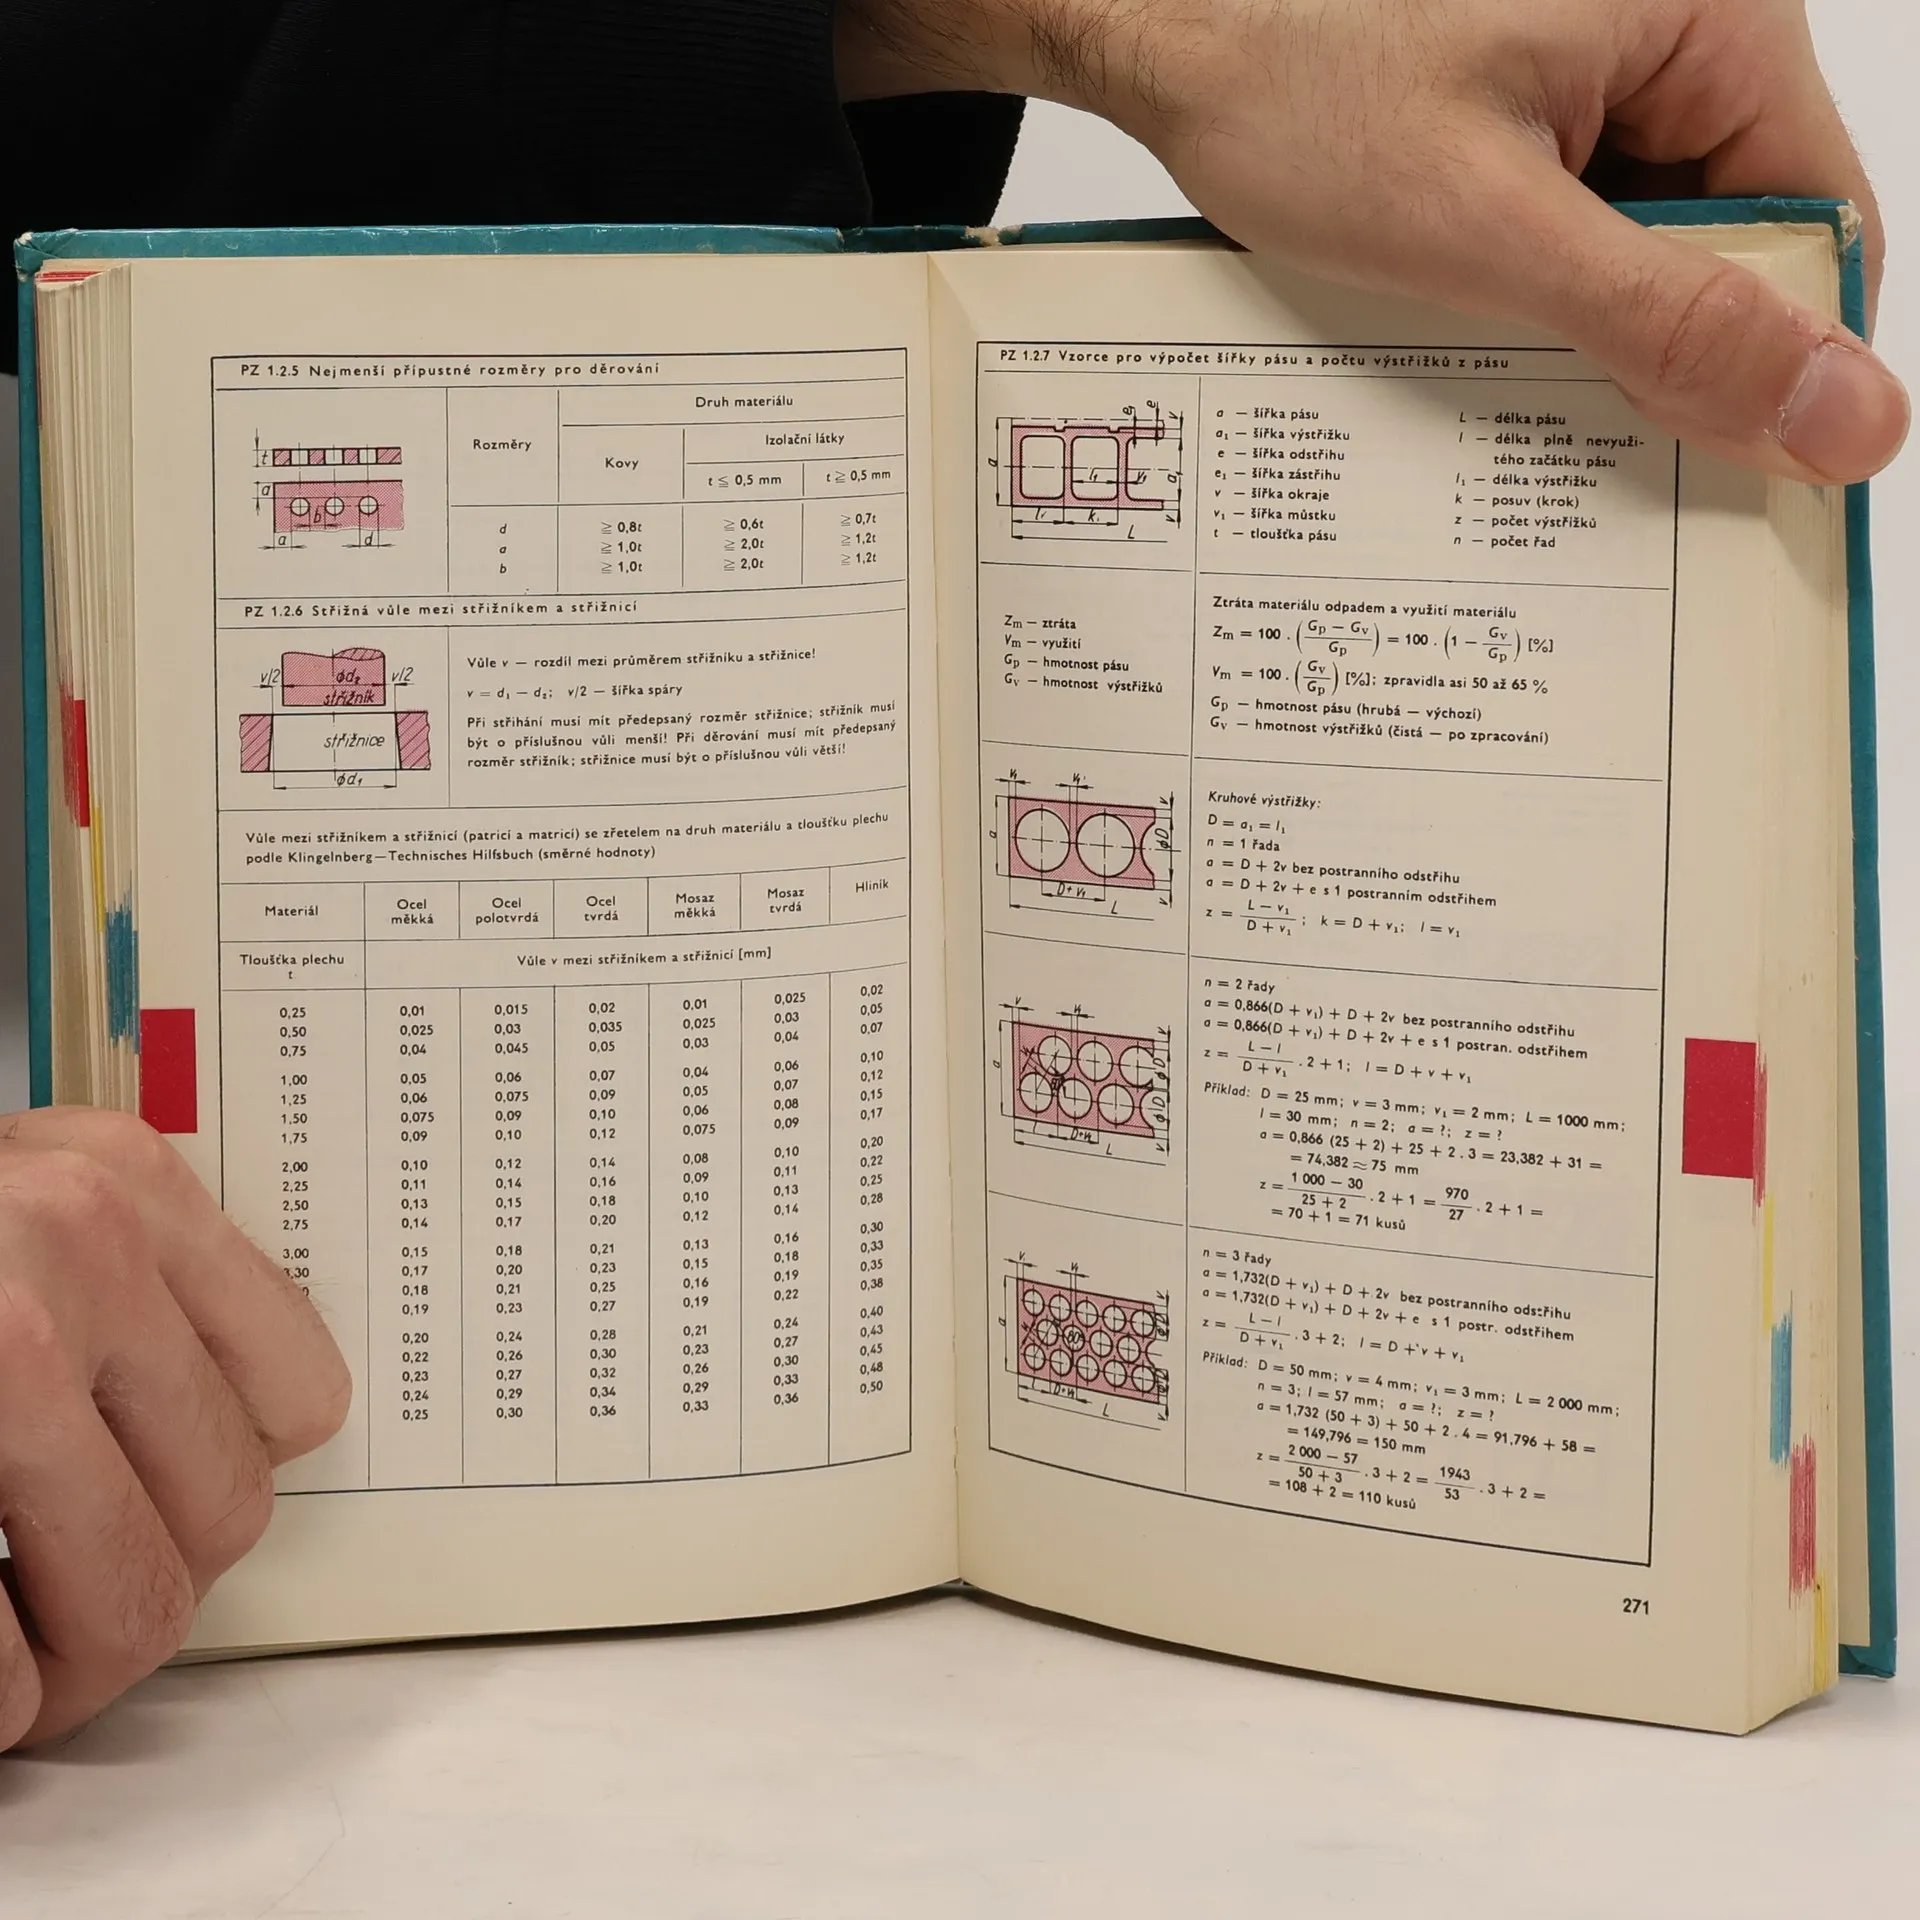 PZ 1.2.5 Nejmenší přípustné rozměry pro děrování
t
a
b
a
d
Rozměry
Druh materiálu
Kovy
Izolační látky
t ≦ 0,5 mm
t ≧ 0,5 mm
d ≧ 0,8t ≧ 0,6t ≧ 0,7t
a ≧ 1,0t ≧ 2,0t ≧ 1,2t
b ≧ 1,0t ≧ 2,0t ≧ 1,2t
PZ 1.2.6 Střižná vůle mezi střižníkem a střižnicí
v/2 ϕd₂ v/2
střižník
střižnice
ϕd₁
Vůle v — rozdíl mezi průměrem střižníku a střižnice!
v = d₁ — d₂; v/2 — šířka spáry
Při střihání musí mít předepsaný rozměr střižnice; střižník musí
být o příslušnou vůli menší! Při děrování musí mít předepsaný
rozměr střižník; střižnice musí být o příslušnou vůli větší!
Vůle mezi střižníkem a střižnicí (patricí a matricí) se zřetelem na druh materiálu a tloušťku plechu
podle Klingelnberg—Technisches Hilfsbuch (směrné hodnoty)
Materiál
Ocel měkká
Ocel polotvrdá
Ocel tvrdá
Mosaz měkká
Mosaz tvrdá
Hliník
Tloušťka plechu
t
Vůle v mezi střižníkem a střižnicí [mm]
0,25 0,01 0,015 0,02 0,01 0,025 0,02
0,50 0,025 0,03 0,035 0,025 0,03 0,05
0,75 0,04 0,045 0,05 0,03 0,04 0,07
1,00 0,05 0,06 0,07 0,04 0,06 0,10
1,25 0,06 0,075 0,09 0,05 0,07 0,12
1,50 0,075 0,09 0,10 0,06 0,08 0,15
1,75 0,09 0,10 0,12 0,075 0,09 0,17
2,00 0,10 0,12 0,14 0,08 0,10 0,20
2,25 0,11 0,14 0,16 0,09 0,11 0,22
2,50 0,13 0,15 0,18 0,10 0,13 0,25
2,75 0,14 0,17 0,20 0,12 0,14 0,28
3,00 0,15 0,18 0,21 0,13 0,16 0,30
3,30 0,17 0,20 0,23 0,15 0,18 0,33
0,18 0,21 0,25 0,16 0,19 0,35
0,19 0,23 0,27 0,19 0,22 0,38
0,20 0,24 0,28 0,21 0,24 0,40
0,22 0,26 0,30 0,23 0,27 0,43
0,23 0,27 0,32 0,26 0,30 0,45
0,24 0,29 0,34 0,29 0,33 0,48
0,25 0,30 0,36 0,33 0,36 0,50
PZ 1.2.7 Vzorce pro výpočet šířky pásu a počtu výstřižků z pásu
a — šířka pásu
a₁ — šířka výstřižku
e — šířka odstřihu
e₁ — šířka zástřihu
v — šířka okraje
v₁ — šířka můstku
t — tloušťka pásu
L — délka pásu
l — délka plně nevyuži-
tého začátku pásu
l₁ — délka výstřižku
k — posuv (krok)
z — počet výstřižků
n — počet řad
Zm — ztráta
Vm — využití
Gp — hmotnost pásu
Gv — hmotnost výstřižků
Ztráta materiálu odpadem a využití materiálu
Zm = 100 . (Gp — Gv / Gp) = 100 . (1 — Gv / Gp) [%]
Vm = 100 . (Gv / Gp) [%]; zpravidla asi 50 až 65 %
Gp — hmotnost pásu (hrubá — výchozí)
Gv — hmotnost výstřižků (čistá — po zpracování)
Kruhové výstřižky:
D = a₁ = l₁
n = 1 řada
a = D + 2v bez postranního odstřihu
a = D + 2v + e s 1 postranním odstřihem
z = L — v₁ / D + v₁; k = D + v₁; l = v₁
D+v₁
L
n = 2 řady
a = 0,866(D + v₁) + D + 2v bez postranního odstřihu
a = 0,866(D + v₁) + D + 2v + e s 1 postran. odstřihem
z = L — l / D + v₁ . 2 + 1; l = D + v + v₁
Příklad: D = 25 mm; v = 3 mm; v₁ = 2 mm; L = 1000 mm;
l = 30 mm; n = 2; a = ?; z = ?
a = 0,866 (25 + 2) + 25 + 2 . 3 = 23,382 + 31 =
= 74,382 ≈ 75 mm
z = 1 000 — 30 / 25 + 2 . 2 + 1 = 970 / 27 . 2 + 1 =
= 70 + 1 = 71 kusů
n = 3 řady
a = 1,732(D + v₁) + D + 2v bez postranního odstřihu
a = 1,732(D + v₁) + D + 2v + e s 1 postr. odstřihem
z = L — l / D + v₁ . 3 + 2; l = D + v + v₁
Příklad: D = 50 mm; v = 4 mm; v₁ = 3 mm; L = 2 000 mm;
n = 3; l = 57 mm; a = ?; z = ?
a = 1,732 (50 + 3) + 50 + 2 . 4 = 91,796 + 58 =
= 149,796 = 150 mm
z = 2 000 — 57 / 50 + 3 . 3 + 2 = 1943 / 53 . 3 + 2 =
= 108 + 2 = 110 kusů
271